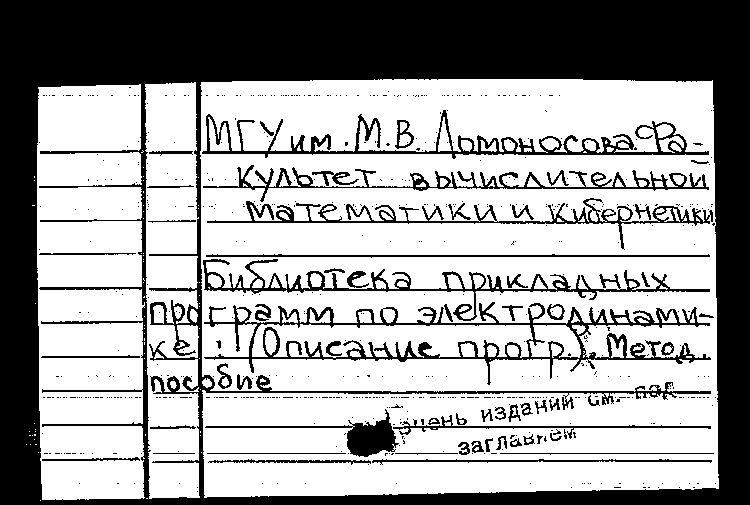 МГУ им. М.В. Ломоносова. Фа-
культет вычислительной
математики и кибернетики
Библиотека прикладных
программ по электродинами-
ке : (Описание прогр.). Метод.
пособие
изданий см. под
заглавием